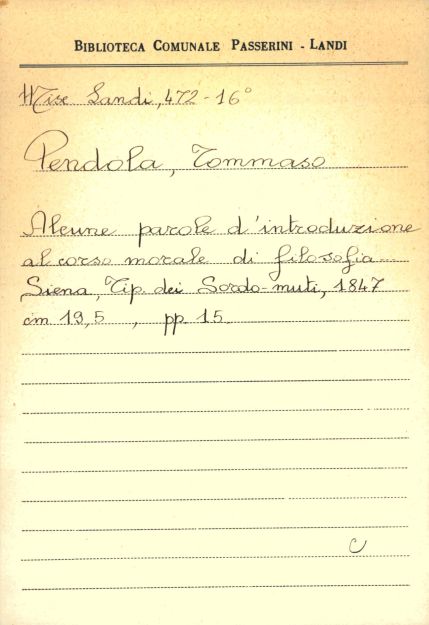 BIBLIOTECA COMUNALE PASSERINI - LANDI
Misc Landi, 472-16°
Pendola, Tommaso
Alcune parole d'introduzione
al corso morale di filosofia...
Siena, Tip. dei Sordo-muti, 1847
cm 19,5 , pp. 15.
C